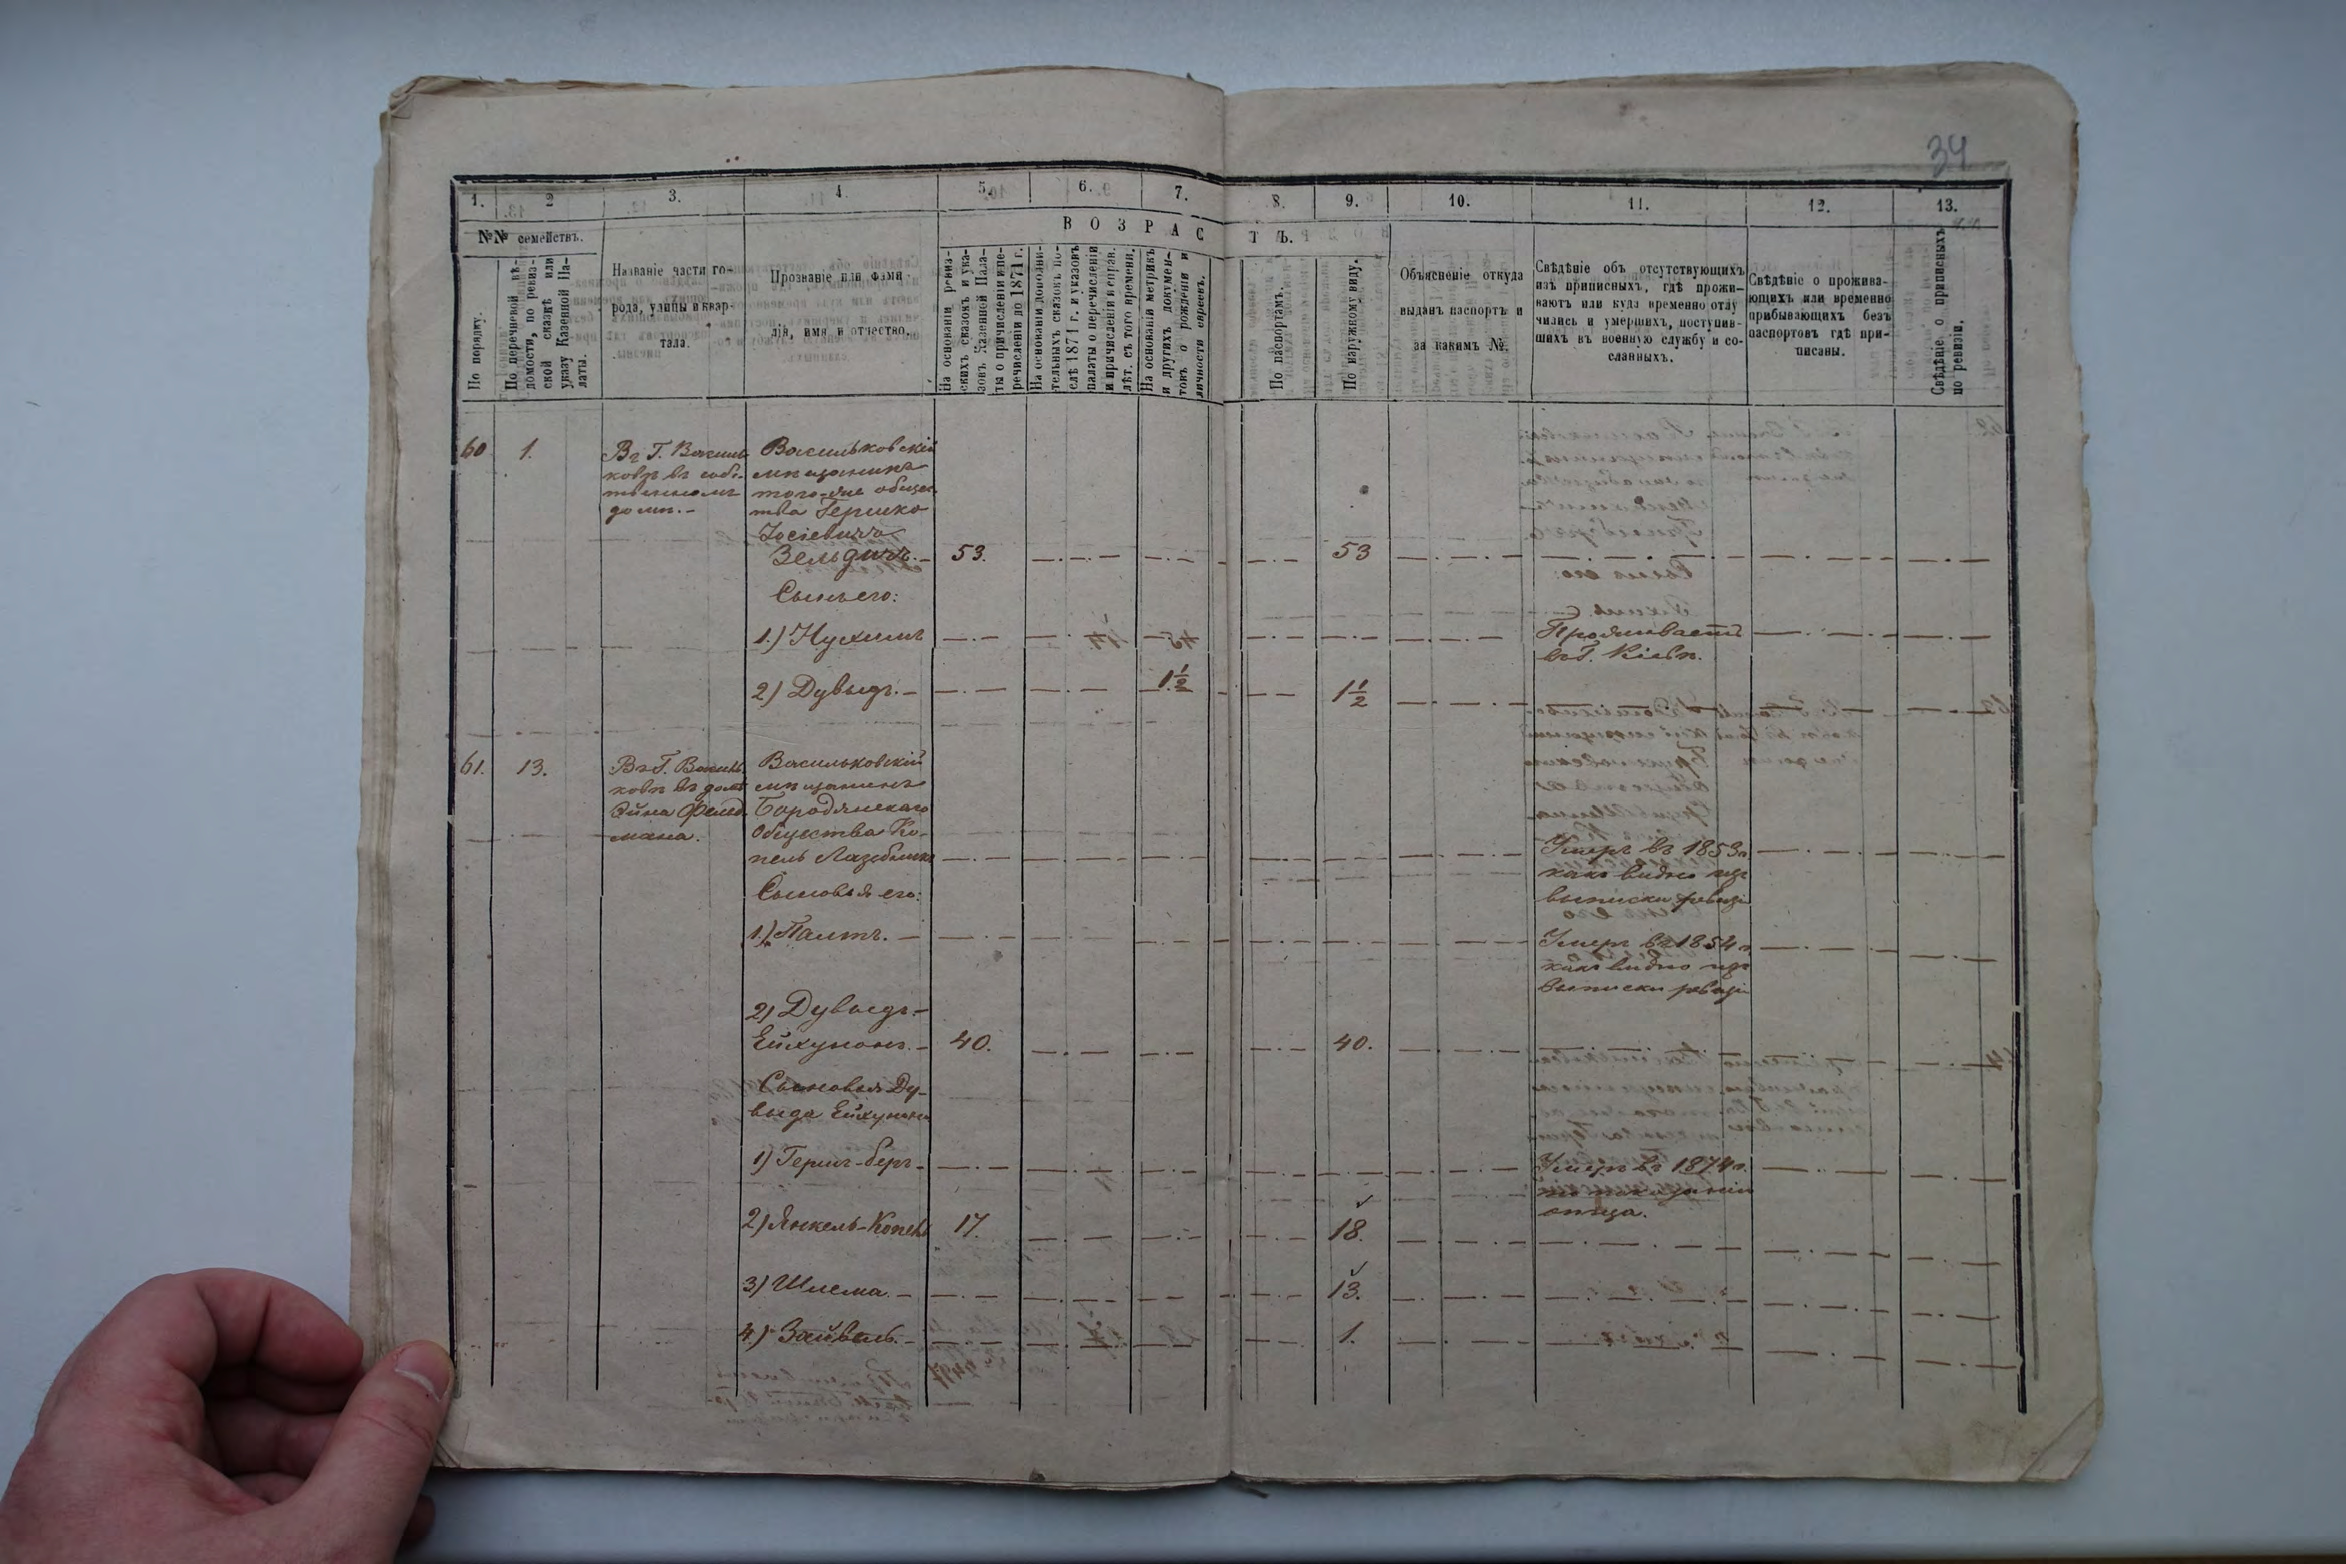 34
1. 2 3. 4. 5. 6. 7. 8. 9. 10. 11. 12. 13.
№№ семействъ.
ВОЗРАСТЪ.
По порядку.
По перечневой вѣ-
домости, по ревиз-
ской сказкѣ или
указу Казенной Па-
латы.
Названіе части го-
рода, улицы и квар-
тала.
Прозваніе или фами-
лія, имя и отчество.
На основаніи ревиз-
скихъ сказокъ и ука-
зовъ Казенной Пала-
ты о причисленіи и пе-
речисленіи до 1871 г.
На основаніи дополни-
тельныхъ сказокъ по-
слѣ 1871 г. и указовъ
палаты о перечисленіи
и причисленіи и неправ.
лѣт. съ того времени.
На основаніи метрикъ
и другихъ докумен-
товъ о рожденіи и
личности евреевъ.
По паспортамъ.
По наружному виду.
Объясненіе откуда
выданъ паспортъ и
за какимъ №.
Свѣдѣніе объ отсутствующихъ
изъ приписныхъ, гдѣ прожи-
ваютъ или куда временно отлу
чились и умершихъ, поступив-
шихъ въ военную службу и со-
сланныхъ.
Свѣдѣніе о прожива-
ющихъ или временно
прибывающихъ безъ
паспортовъ гдѣ при-
писаны.
Свѣдѣніе о приписныхъ
по ревизіи.
60 1.
Въ Г. Василь
ковѣ въ собс-
твенномъ
домѣ.-
Васильковскій
мѣщанинъ
того-же общес
тва Гершко
Іосіевичъ
Зельдичъ.- 53. 53
Сынъ его:
1.) Нухимъ
Проживаетъ
въ Г. Кіевѣ.
2) Дувыдъ.- 1½ 1½
61. 13.
Въ Г. Василь
ковѣ въ домѣ
Эйна Фельд
мана.
Васильковскій
мѣщанинъ
Бородянскаго
Общества Ко-
пель
Умеръ въ 1853 г
какъ видно изъ
выписки ревизі
Сыновья его:
1.)
Умеръ въ 1854 г
какъ видно изъ
выписки ревизі
2) Дувыдъ-
Ейхунонъ.- 40. 40.
Сыновья Ду-
выда Ейхунона
1) Гершъ-беръ-
Умеръ въ 1874 г.
по показанію
отца.
2) Янкель-Копель 17. 18.
3) Шлема.- 13.
4.) Зайвель.- 1.